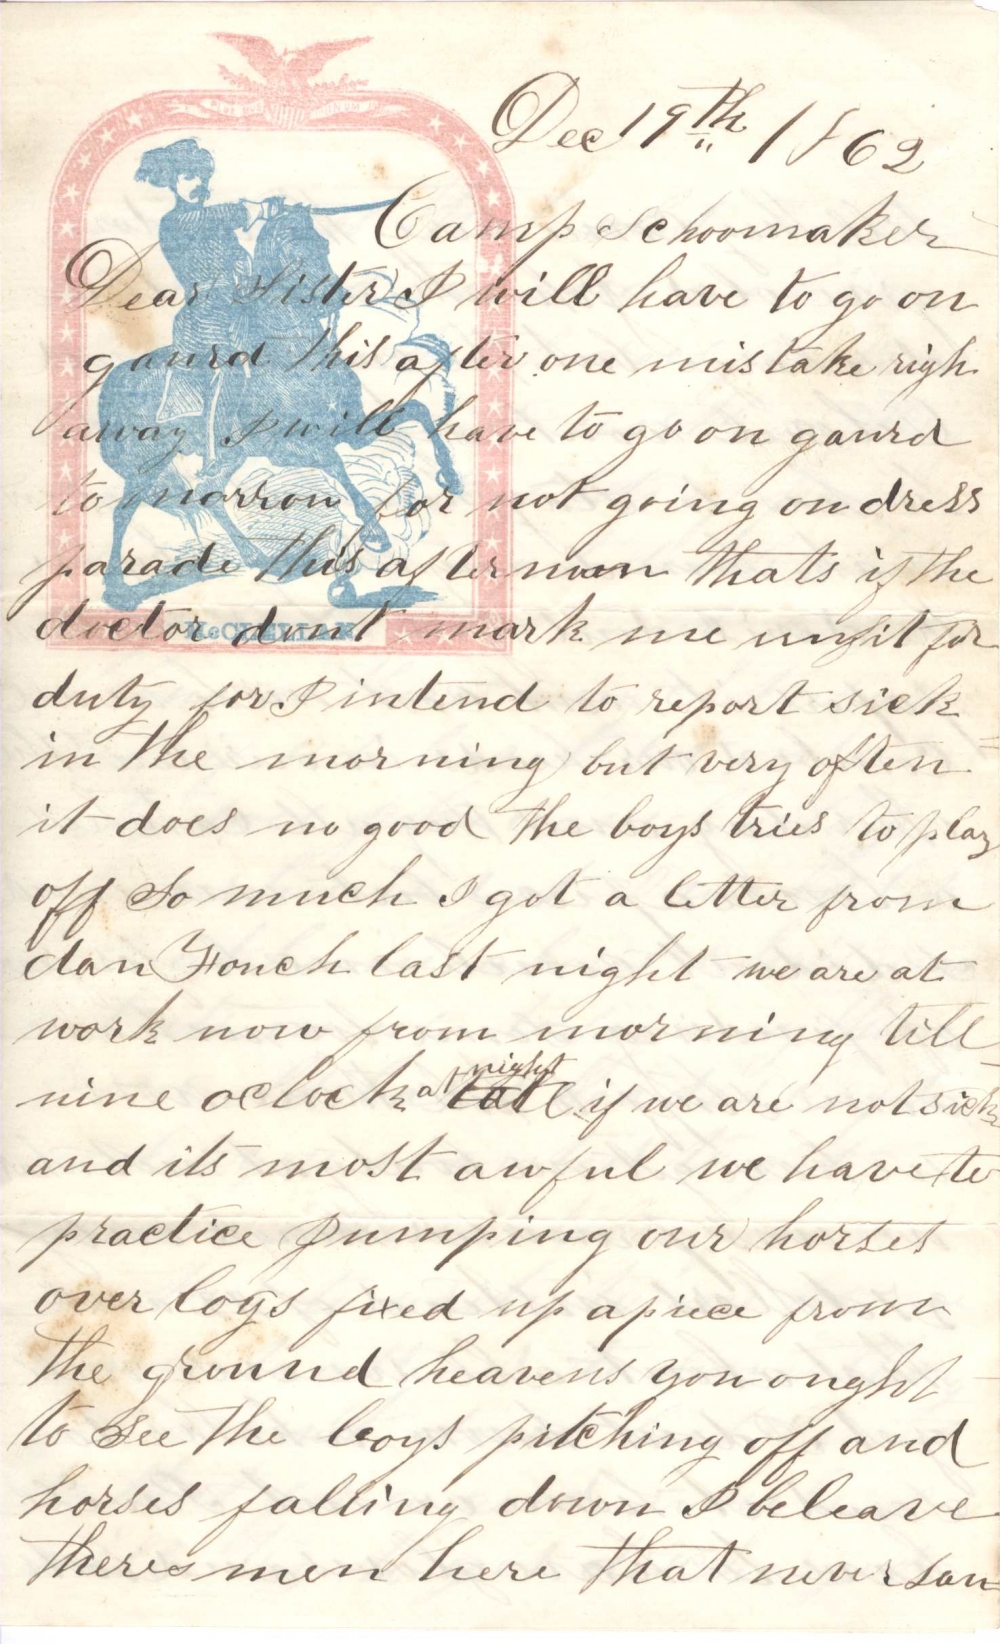 Dec 19th 1862
Camp Schoomaker
Dear Sister I will have to go on
gaurd this after one mistake righ
away I will have to go on gaurd
tomorrow for not going on dress
parade this afternoon thats if the
doctor dont mark me unfit for
McCLELLAN
duty for I intend to report sick
in the morning but very often
it does no good the boys tries to play
off so much I got a letter from
dan Fouch last night we are at
work now from morning till
nine oclock at night if we are not sick
and its most awful we have to
practice Jumping our horses
over logs fixed up apiece from
the ground heavens you ought
to see the boys pitching off and
horses falling down I beleave
theres men here that never saw